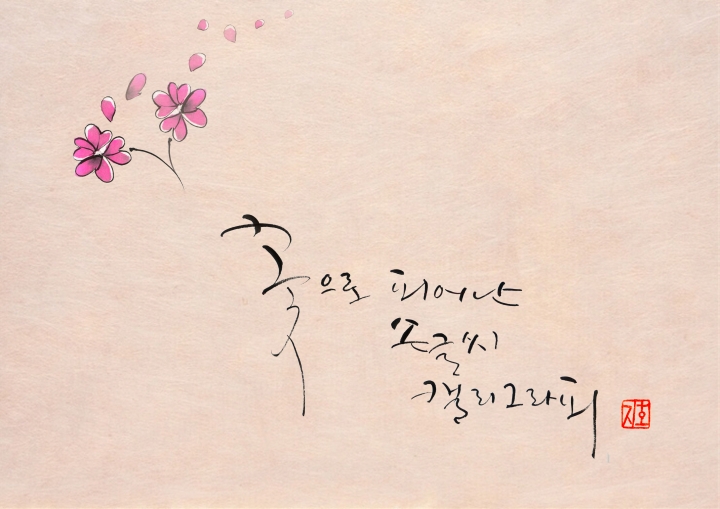 꽃으로 피어난
손글씨
캘리그라피